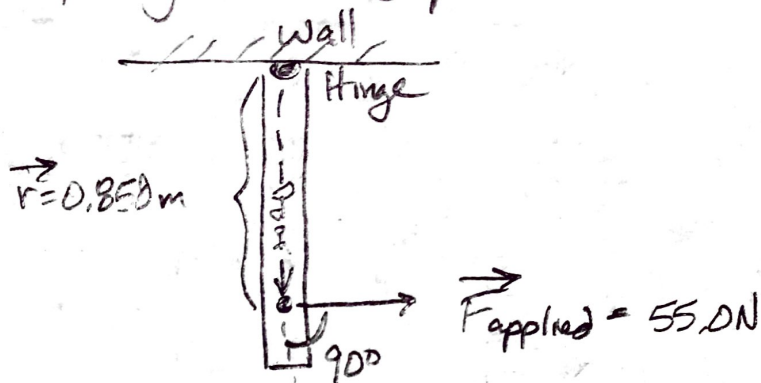 Wall
Hinge
r=0.850m
Door
Fapplied = 55.0N
90°